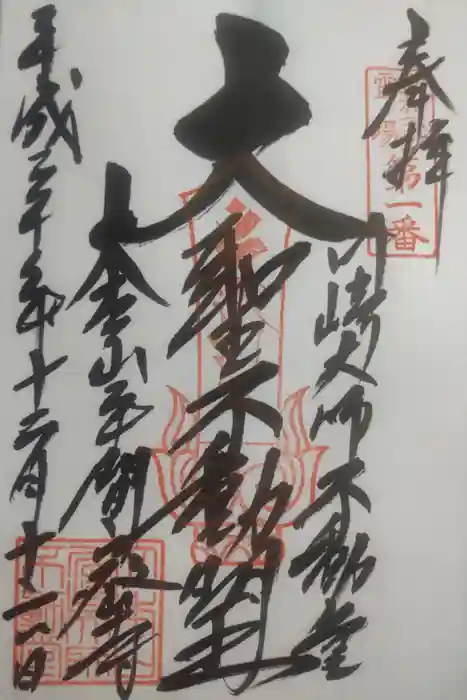 奉拝
霊場第一番
川崎大師不動堂
大聖不動明王
大本山平間寺
平成三十年十二月十二日